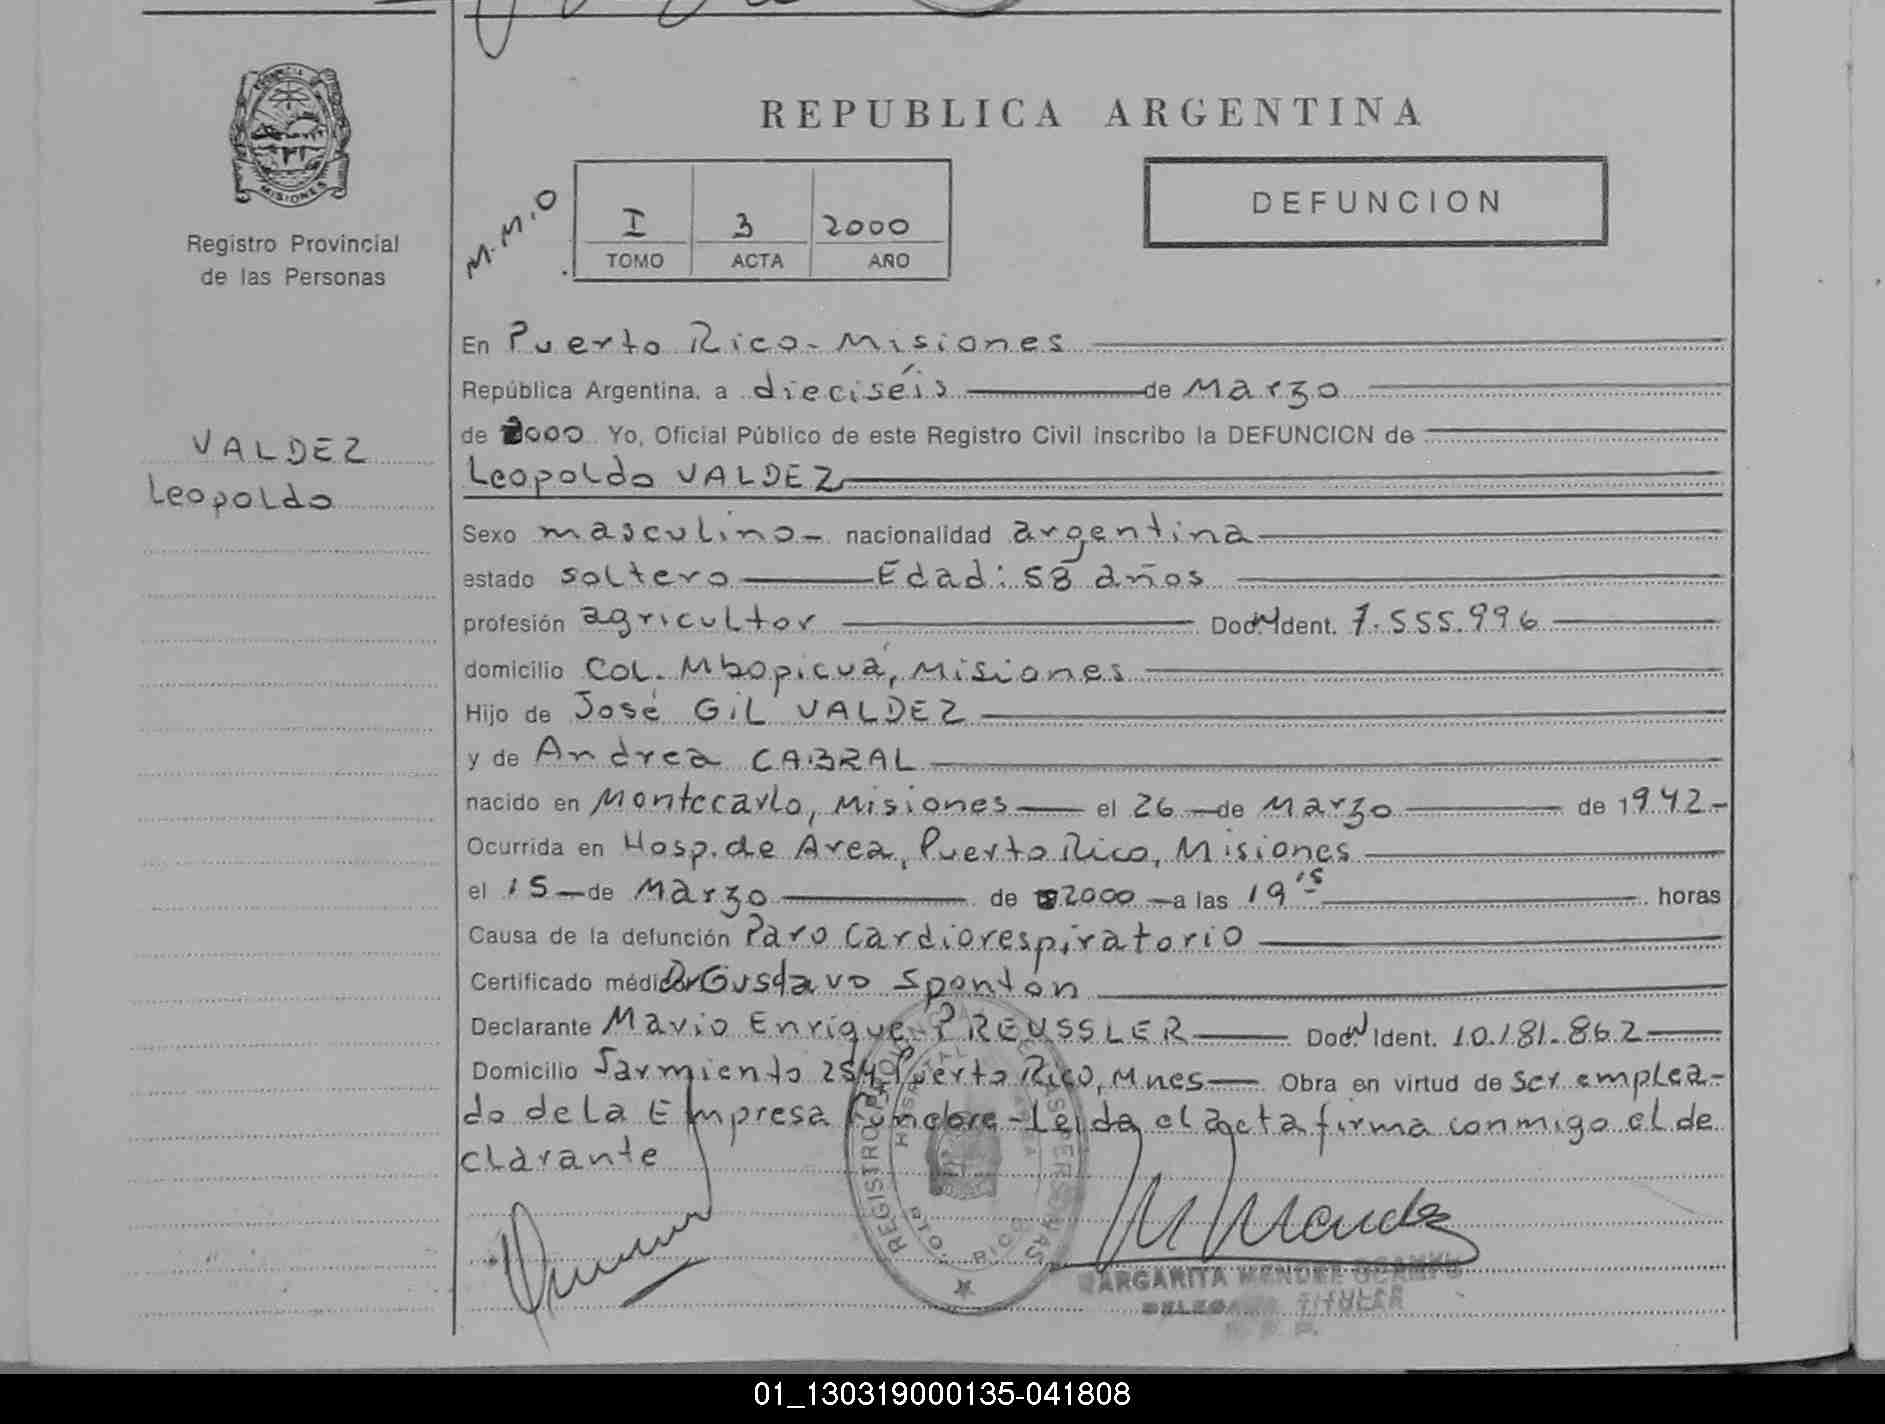 REPUBLICA ARGENTINA
PROVINCIA DE
MISIONES
Registro Provincial
de las Personas
M.M.O
I 3 2000
TOMO ACTA AÑO
DEFUNCION
VALDEZ
Leopoldo
En Puerto Rico - Misiones
República Argentina, a dieciséis de Marzo
de 2000 Yo, Oficial Público de este Registro Civil inscribo la DEFUNCION de
Leopoldo VALDEZ
Sexo masculino - nacionalidad argentina
estado soltero Edad: 58 años
profesión agricultor Doc. Ident. 7.555.996
domicilio Col. Mbopicuá, Misiones
Hijo de José GIL VALDEZ
y de Andrea CABRAL
nacido en Montecarlo, Misiones el 26 de Marzo de 1942.-
Ocurrida en Hosp. de Area, Puerto Rico, Misiones
el 15 de Marzo de 2000 a las 19 15 horas
Causa de la defunción Paro Cardiorespiratorio
Certificado médico Dr Gustavo Spontón
Declarante Mario Enrique PREUSSLER Doc. N Ident. 10.181.862
Domicilio Sarmiento 2540 Puerto Rico, Mnes Obra en virtud de ser emplea-
do de la Empresa Fúnebre - Leída el acta firma conmigo el de
clarante
REGISTRO PERSONAS
HOSPITAL
RICO
M Mendez
MARGARITA MENDEZ OCAMPO
DELEGADA TITULAR
01_130319000135-041808